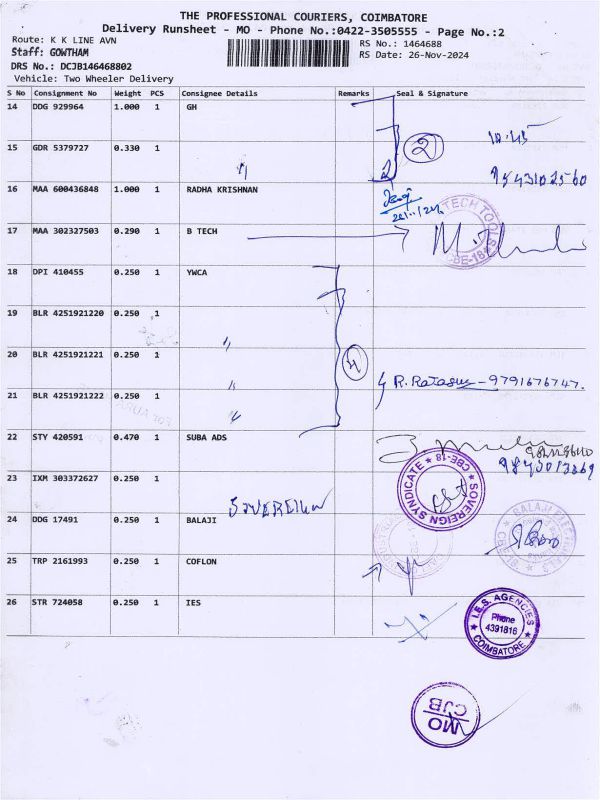 THE PROFESSIONAL COURIERS, COIMBATORE
Delivery Runsheet - MO - Phone No.:0422-3505555 - Page No.:2
Route: K K LINE AVN
Staff: GOWTHAM
DRS No.: DCJB146468802
Vehicle: Two Wheeler Delivery
RS No.: 1464688
RS Date: 26-Nov-2024
S No Consignment No Weight PCS Consignee Details Remarks Seal & Signature
14 DDG 929964 1.000 1 GH
15 GDR 5379727 0.330 1
2
10:45
16 MAA 600436848 1.000 1 RADHA KRISHNAN
17 MAA 302327503 0.290 1 B TECH
TECH TOOLS
CBE-18
18 DPI 410455 0.250 1 YWCA
19 BLR 4251921220 0.250 1
20 BLR 4251921221 0.250 1
4
21 BLR 4251921222 0.250 1
9791676747.
22 STY 420591 0.470 1 SUBA ADS
23 IXM 303372627 0.250 1
SOVEREIGN SYNDICATE
CBE-18
SOVEREIGN
24 DDG 17491 0.250 1 BALAJI
25 TRP 2161993 0.250 1 COFLON
26 STR 724058 0.250 1 IES
I.E.S. AGENCIES
Phone
4391816
COIMBATORE
MO
CJB